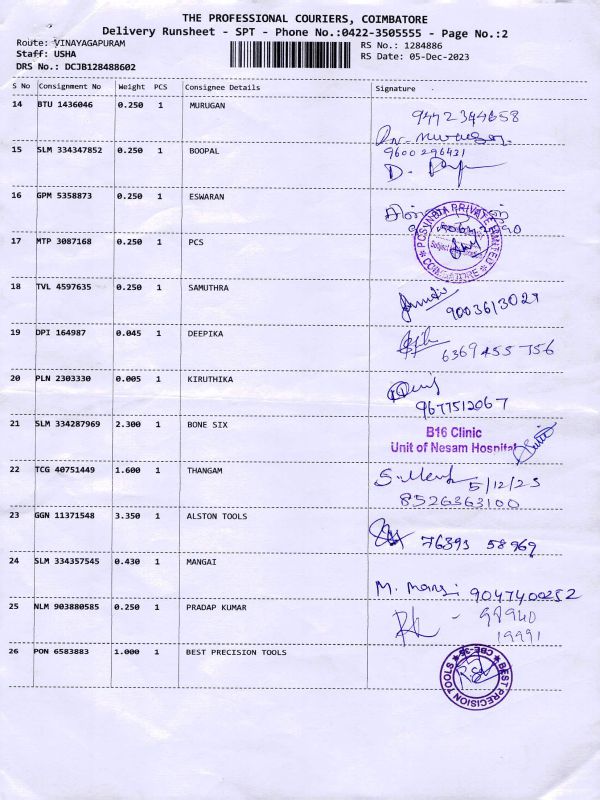 THE PROFESSIONAL COURIERS, COIMBATORE
Delivery Runsheet - SPT - Phone No.:0422-3505555 - Page No.:2
Route: VINAYAGAPURAM
Staff: USHA
DRS No.: DCJB128488602
RS No.: 1284886
RS Date: 05-Dec-2023
S No Consignment No Weight PCS Consignee Details Signature
14 BTU 1436046 0.250 1 MURUGAN
9442344658
15 SLM 334347852 0.250 1 BOOPAL
9600296431
16 GPM 5358873 0.250 1 ESWARAN
17 MTP 3087168 0.250 1 PCS
PRIVATE LIMITED
COIMBATORE
18 TVL 4597635 0.250 1 SAMUTHRA
9003613029
19 DPI 164987 0.045 1 DEEPIKA
6369455756
20 PLN 2303330 0.005 1 KIRUTHIKA
9677512067
21 SLM 334287969 2.300 1 BONE SIX
B16 Clinic
Unit of Nesam Hospital
22 TCG 40751449 1.600 1 THANGAM
5/12/23
8526363100
23 GGN 11371548 3.350 1 ALSTON TOOLS
76393 58969
24 SLM 334357545 0.430 1 MANGAI
9047400252
25 NLM 903880585 0.250 1 PRADAP KUMAR
98940
19991
26 PON 6583883 1.000 1 BEST PRECISION TOOLS
BEST PRECISION TOOLS
CBE-35